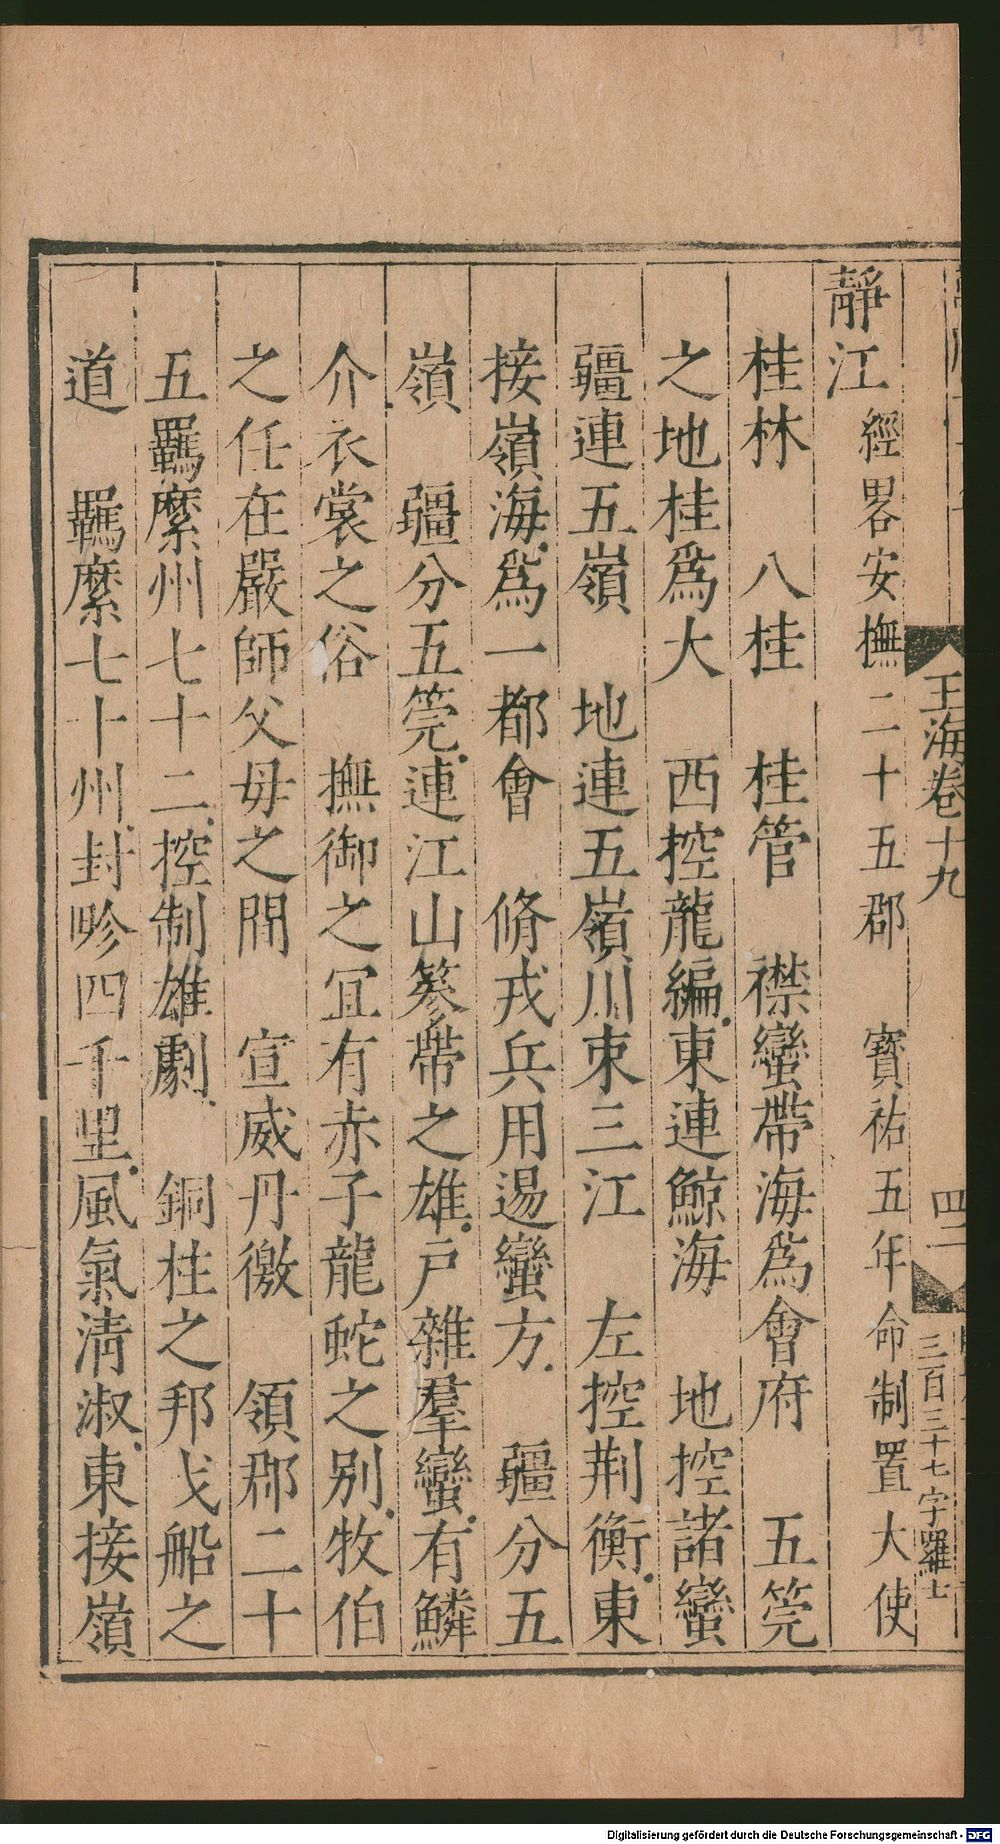 王海卷十九
四二
三百三十七字羅七
靜江經畧安撫 二十五郡 寶祐五年命制置大使
桂林 八桂 桂管 襟蠻帶海爲會府 五筦
之地桂爲大 西控龍編東連鯨海 地控諸蠻
疆連五嶺 地連五嶺川束三江 左控荆衡東
接嶺海爲一都會 脩戎兵用逷蠻方 疆分五
嶺 疆分五筦連江山篸帶之雄戸雜羣蠻有鱗
介衣裳之俗 撫御之冝有赤子龍蛇之别牧伯
之任在嚴師父毋之間 宣威丹徼 領郡二十
五羈縻州七十二控制雄劇 銅柱之邦戈船之
道 羈縻七十州封畛四千里風氣淸淑東接嶺
Digitalisierung gefördert durch die Deutsche Forschungsgemeinschaft - DFG